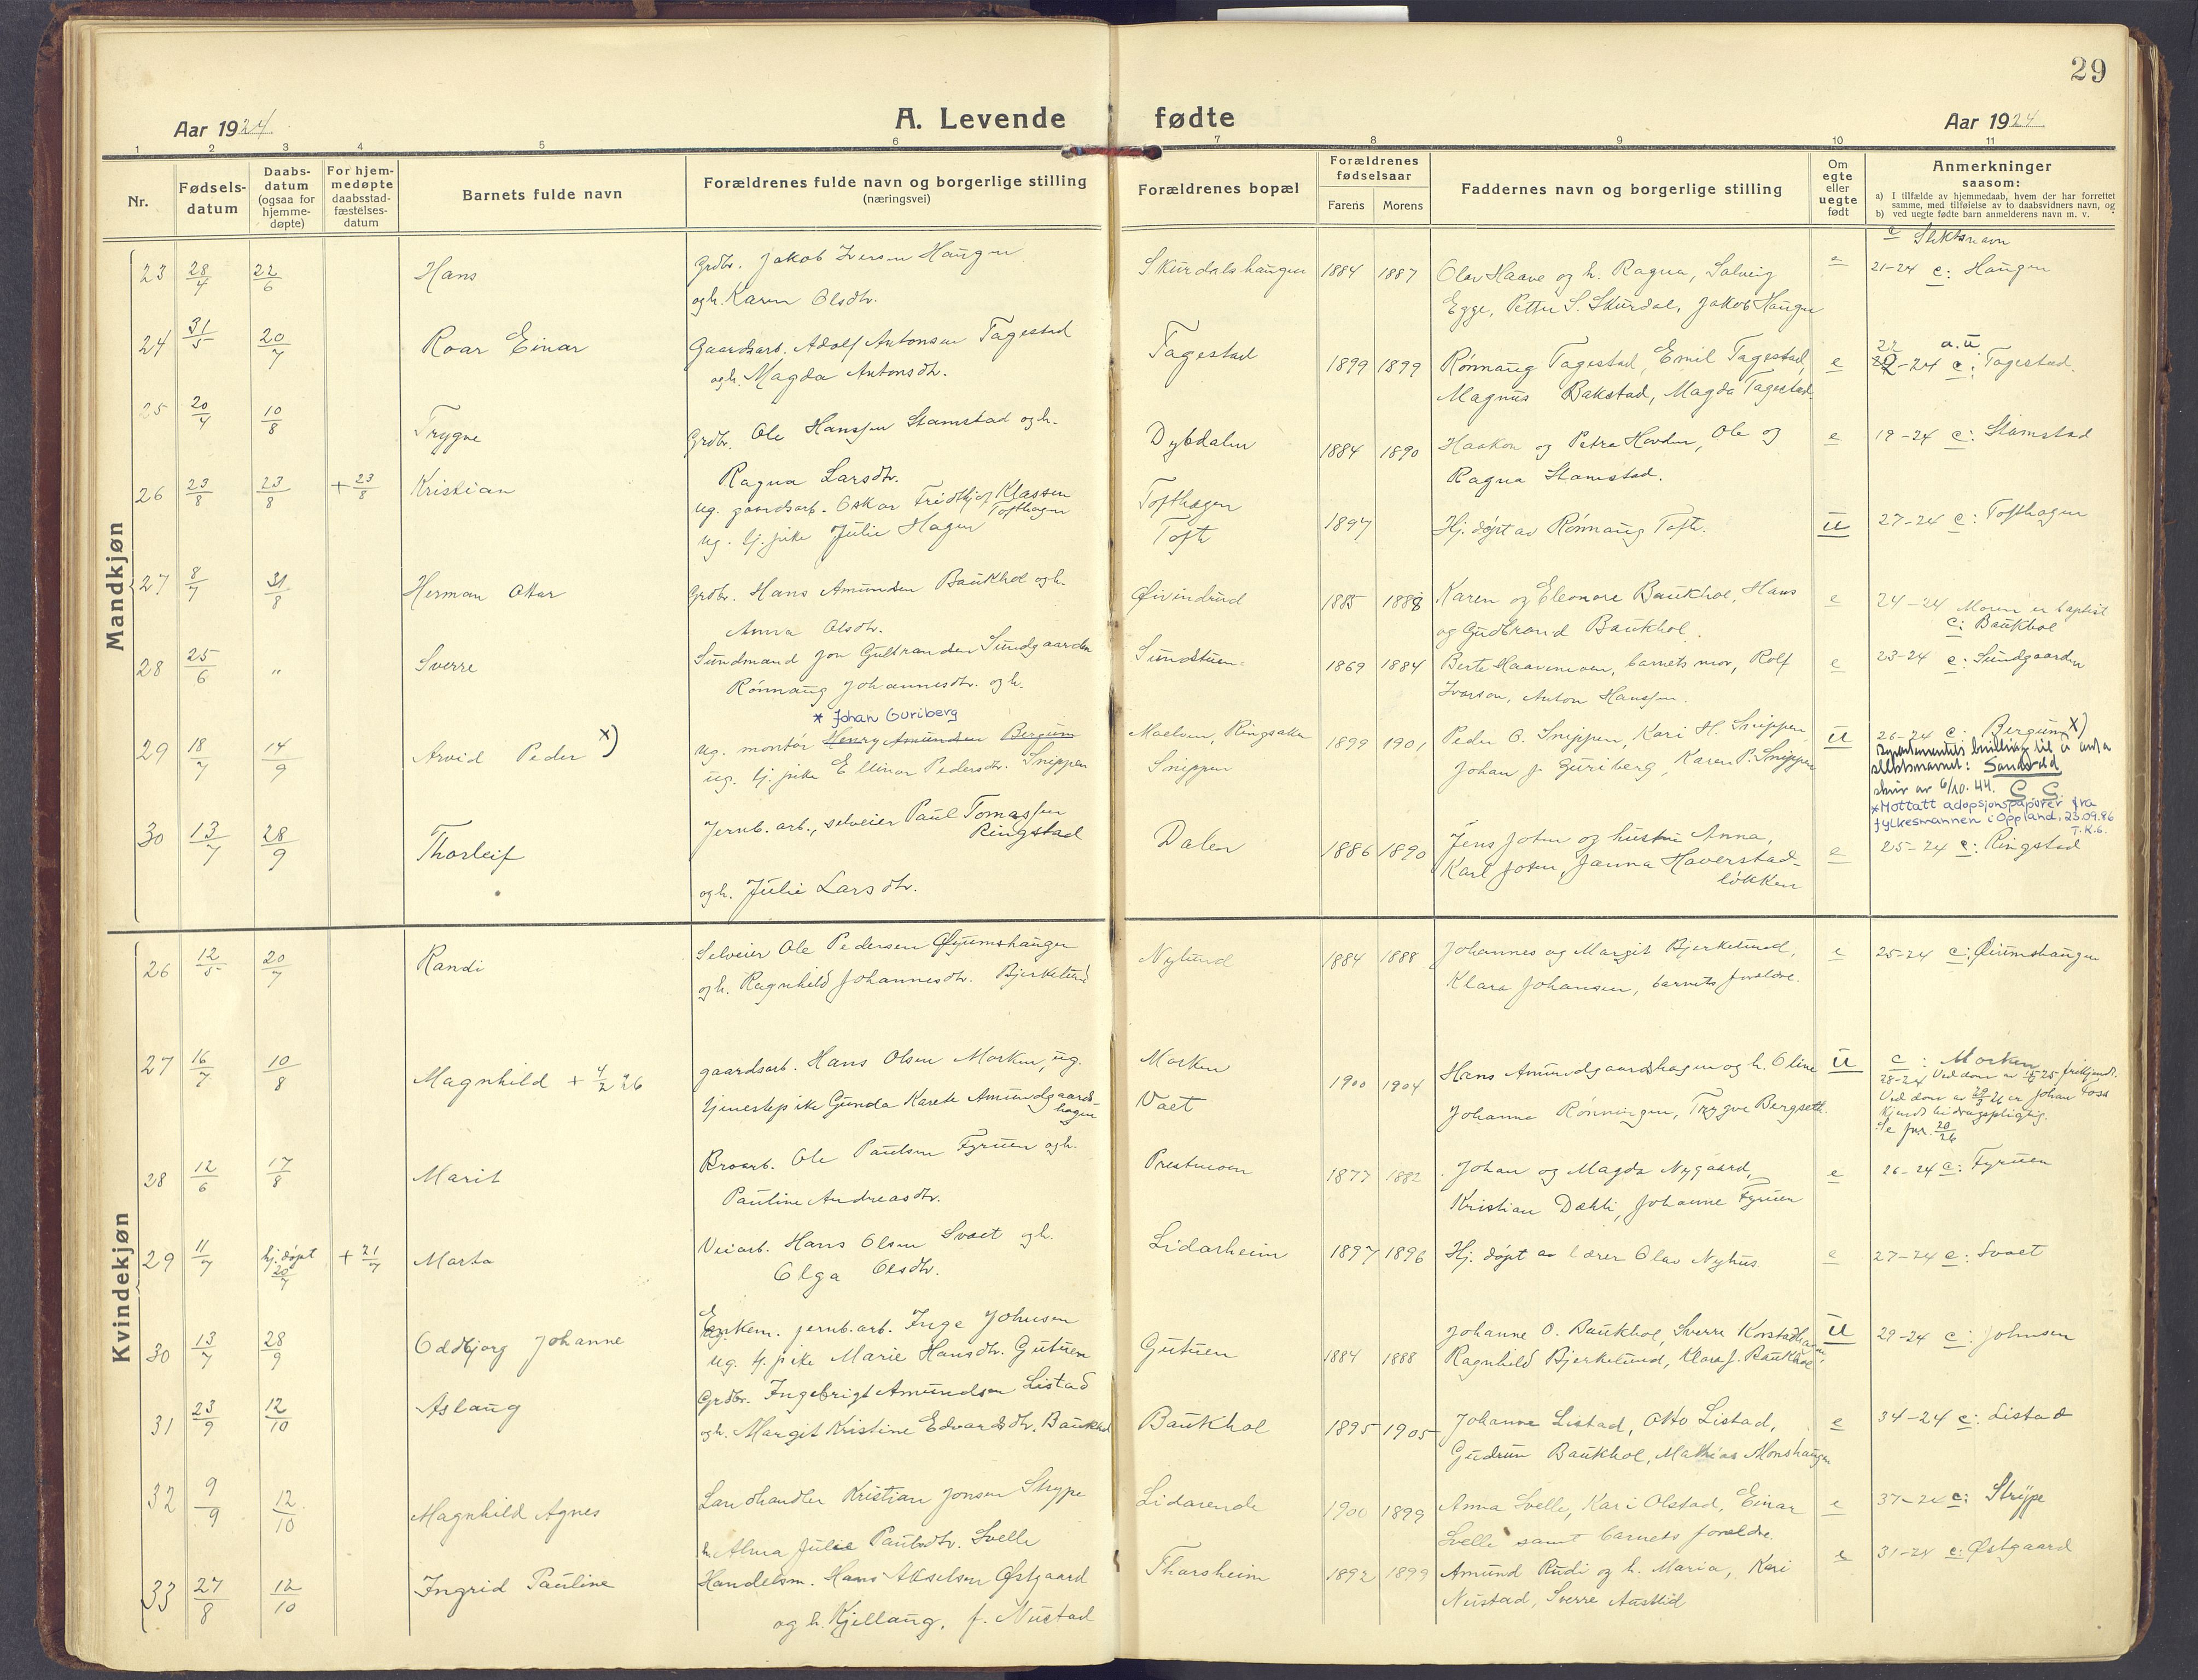 29
Aar 1924
A. Levende fødte
Aar 1924
1 2 3 4 5 6 7 8 9 10 11
Nr.
Fødsels-
datum
Daabs-
datum
(ogsaa for
hjemme-
døpte)
For hjem-
medøpte
daabsstad-
fæstelses-
datum
Barnets fulde navn
Forældrenes fulde navn og borgerlige stilling
(næringsvei)
Forældrenes bopæl
Forældrenes
fødselsaar
Farens Morens
Faddernes navn og borgerlige stilling
Om
egte
eller
uegte
født
Anmerkninger
saasom:
a) I tilfælde av hjemmedaab, hvem der har forrettet
samme, med tilføielse av to daabsvidners navn, og
b) ved uegte fødte barn anmelderens navn m. v.
Mandkjøn
c Slektsnavn
23 28/4 22/6 Hans
Grdbr. Jakob Iversen Haugen
og h. Karen Olsdtr.
Skurdalshaugen 1884 1887
Olav Haave og h. Ragna, Solveig
Egge, Petter S. Skurdal, Jakob Haugen
e 21-24 c: Haugen
24 31/5 20/7 Roar Einar
Gaardsarb. Adolf Antonsen Tagestad
og h. Magda Antonsdtr.
Tagestad 1899 1899
Rønnaug Tagestad, Emil Tagestad,
Magnus Bakstad, Magda Tagestad.
e 22-24 c: Tagestad.
25 20/4 10/8 Trygve
Grdbr. Ole Hanssen Stamstad og h.
Ragna Larsdtr.
Dybdalen 1884 1890
Haakon og Petra Hovden, Ole og
Ragna Stamstad.
e 19-24 c: Stamstad
26 23/8 23/8 + 23/8 Kristian
ug. gaardsarb. Oskar Fridthjof Klassen
Tofthagen
ug. tj. pike Julie Hagen
Tofthagen
Toft
1897
Hj. døpt av Rønnaug Toft.
u 27-24 c: Tofthagen
27 8/7 31/8 Herman Ottar
Grdbr. Hans Amundsen Baukhol og h.
Anna Olsdtr.
Øivindrud 1885 1888
Karen og Eleonore Baukhol, Hans
og Gudbrand Baukhol.
e 24-24 Moren er baptist
c: Baukhol
28 25/6 " Sverre
Sundmand Jon Gulbrandsen Sundgaarden
Rønnaug Johannesdtr. og h.
Sundstuen 1869 1884
Berte Haavemoen, barnets mor, Rolf
Ivarson, Anton Hanssen.
e 23-24 c: Sundgaarden
29 18/7 14/9 Arvid Peder x)
* Johan Guriberg
ug. montør Henry Amundsen Bergum
ug. tj. pike Ellinor Pedersdtr. Snippen
Maelven, Ringsaker
Snippen
1899 1901
Peder O. Snippen, Kari H. Snippen,
Johan J. Guriberg, Karen P. Snippen
u 26-24 c: Bergum x)
Departementets bevilling til å anta
slektsnavnet:
skriv av 6/10. 44.
* Mottatt adopsjonspapirer fra
fylkesmannen i Oppland, 23.09.86
T.K.G.
30 13/7 28/9 Thorleif
Jernb. arb., selveier Paul Tomassen
Ringstad
og h. Julie Larsdtr.
Dalen 1886 1890
Jens Joten og hustru Anna,
Karl Joten, Janna Haverstad-
løkken
e 25-24 c: Ringstad
Kvindekjøn
26 12/5 20/7 Randi
Selveier Ole Pedersen Øyumshaugen
og h. Ragnhild Johannesdtr. Bjerkelund
Nylund 1884 1888
Johannes og Margit Bjerkelund,
Klara Johansen, barnets foreldre.
e 25-24 c: Øiumshaugen
27 16/7 10/8 Magnhild + 4/2 26
gaardsarb. Hans Olsen Morken, ug.
tjenestepike Gunda Karete Amundgaards-
hagen
Morken
Vaet
1900 1904
Hans Amundgaardshagen og h. Oline
Johanne Rønningen, Trygve Bergseth.
u c: Morken
28-24 Ved dom av 25 frikjendt.
Ved dom av 26 er Johan Foss
kjendt bidragspligtig.
Se jnr. 20/26
28 12/6 17/8 Marit
Broarb. Ole Paulsen Fyruen og h.
Pauline Andreasdtr.
Prestmoen 1877 1882
Johan og Magda Nygaard,
Kristian Dæhli, Johanne Fyruen
e 26-24 c: Fyruen
29 11/7 hj. døpt 20/7 + 21/7 Marta
Veiarb. Hans Olsen Svaet og h.
Olga Olsdtr.
Lidarheim 1897 1896
Hj. døpt av lærer Olav Nyhus
e 27-24 c: Svaet
30 13/7 28/9 Oddbjørg Johanne
Enkem. jernb. arb. Inge Johnsen
ug. tj. pike Marie Hansdtr. Gutuen
Gutuen 1884 1888
Johanne O. Baukhol, Sverre Korstadhagen,
Ragnhild Bjerkelund, Klara J. Baukhol
u 29-24 c: Johnsen
31 23/9 12/10 Aslaug
Grdbr. Ingebrigt Amundsen Listad
og h. Margit Kristine Edvardsdtr. Baukhol
Baukhol 1895 1905
Johanne Listad, Otto Listad,
Gudrun Baukhol, Mathias Monshaugen
e 34-24 c: Listad
32 9/9 12/10 Magnhild Agnes
Landhandler Kristian Jonsen Strype
h. Alma Julie Paulsdtr. Svelle
Lidarende 1900 1899
Anna Svelle, Kari Olstad, Einar
Svelle samt barnets foreldre
e 37-24 c: Strype
33 27/8 12/10 Ingrid Pauline
Handelsm. Hans Akselsen Østgaard
og h. Kjellaug, f. Nustad
Thorsheim 1892 1899
Amund Rudi og h. Maria, Kari
Nustad, Sverre Austlid
e 31-24 c: Østgaard